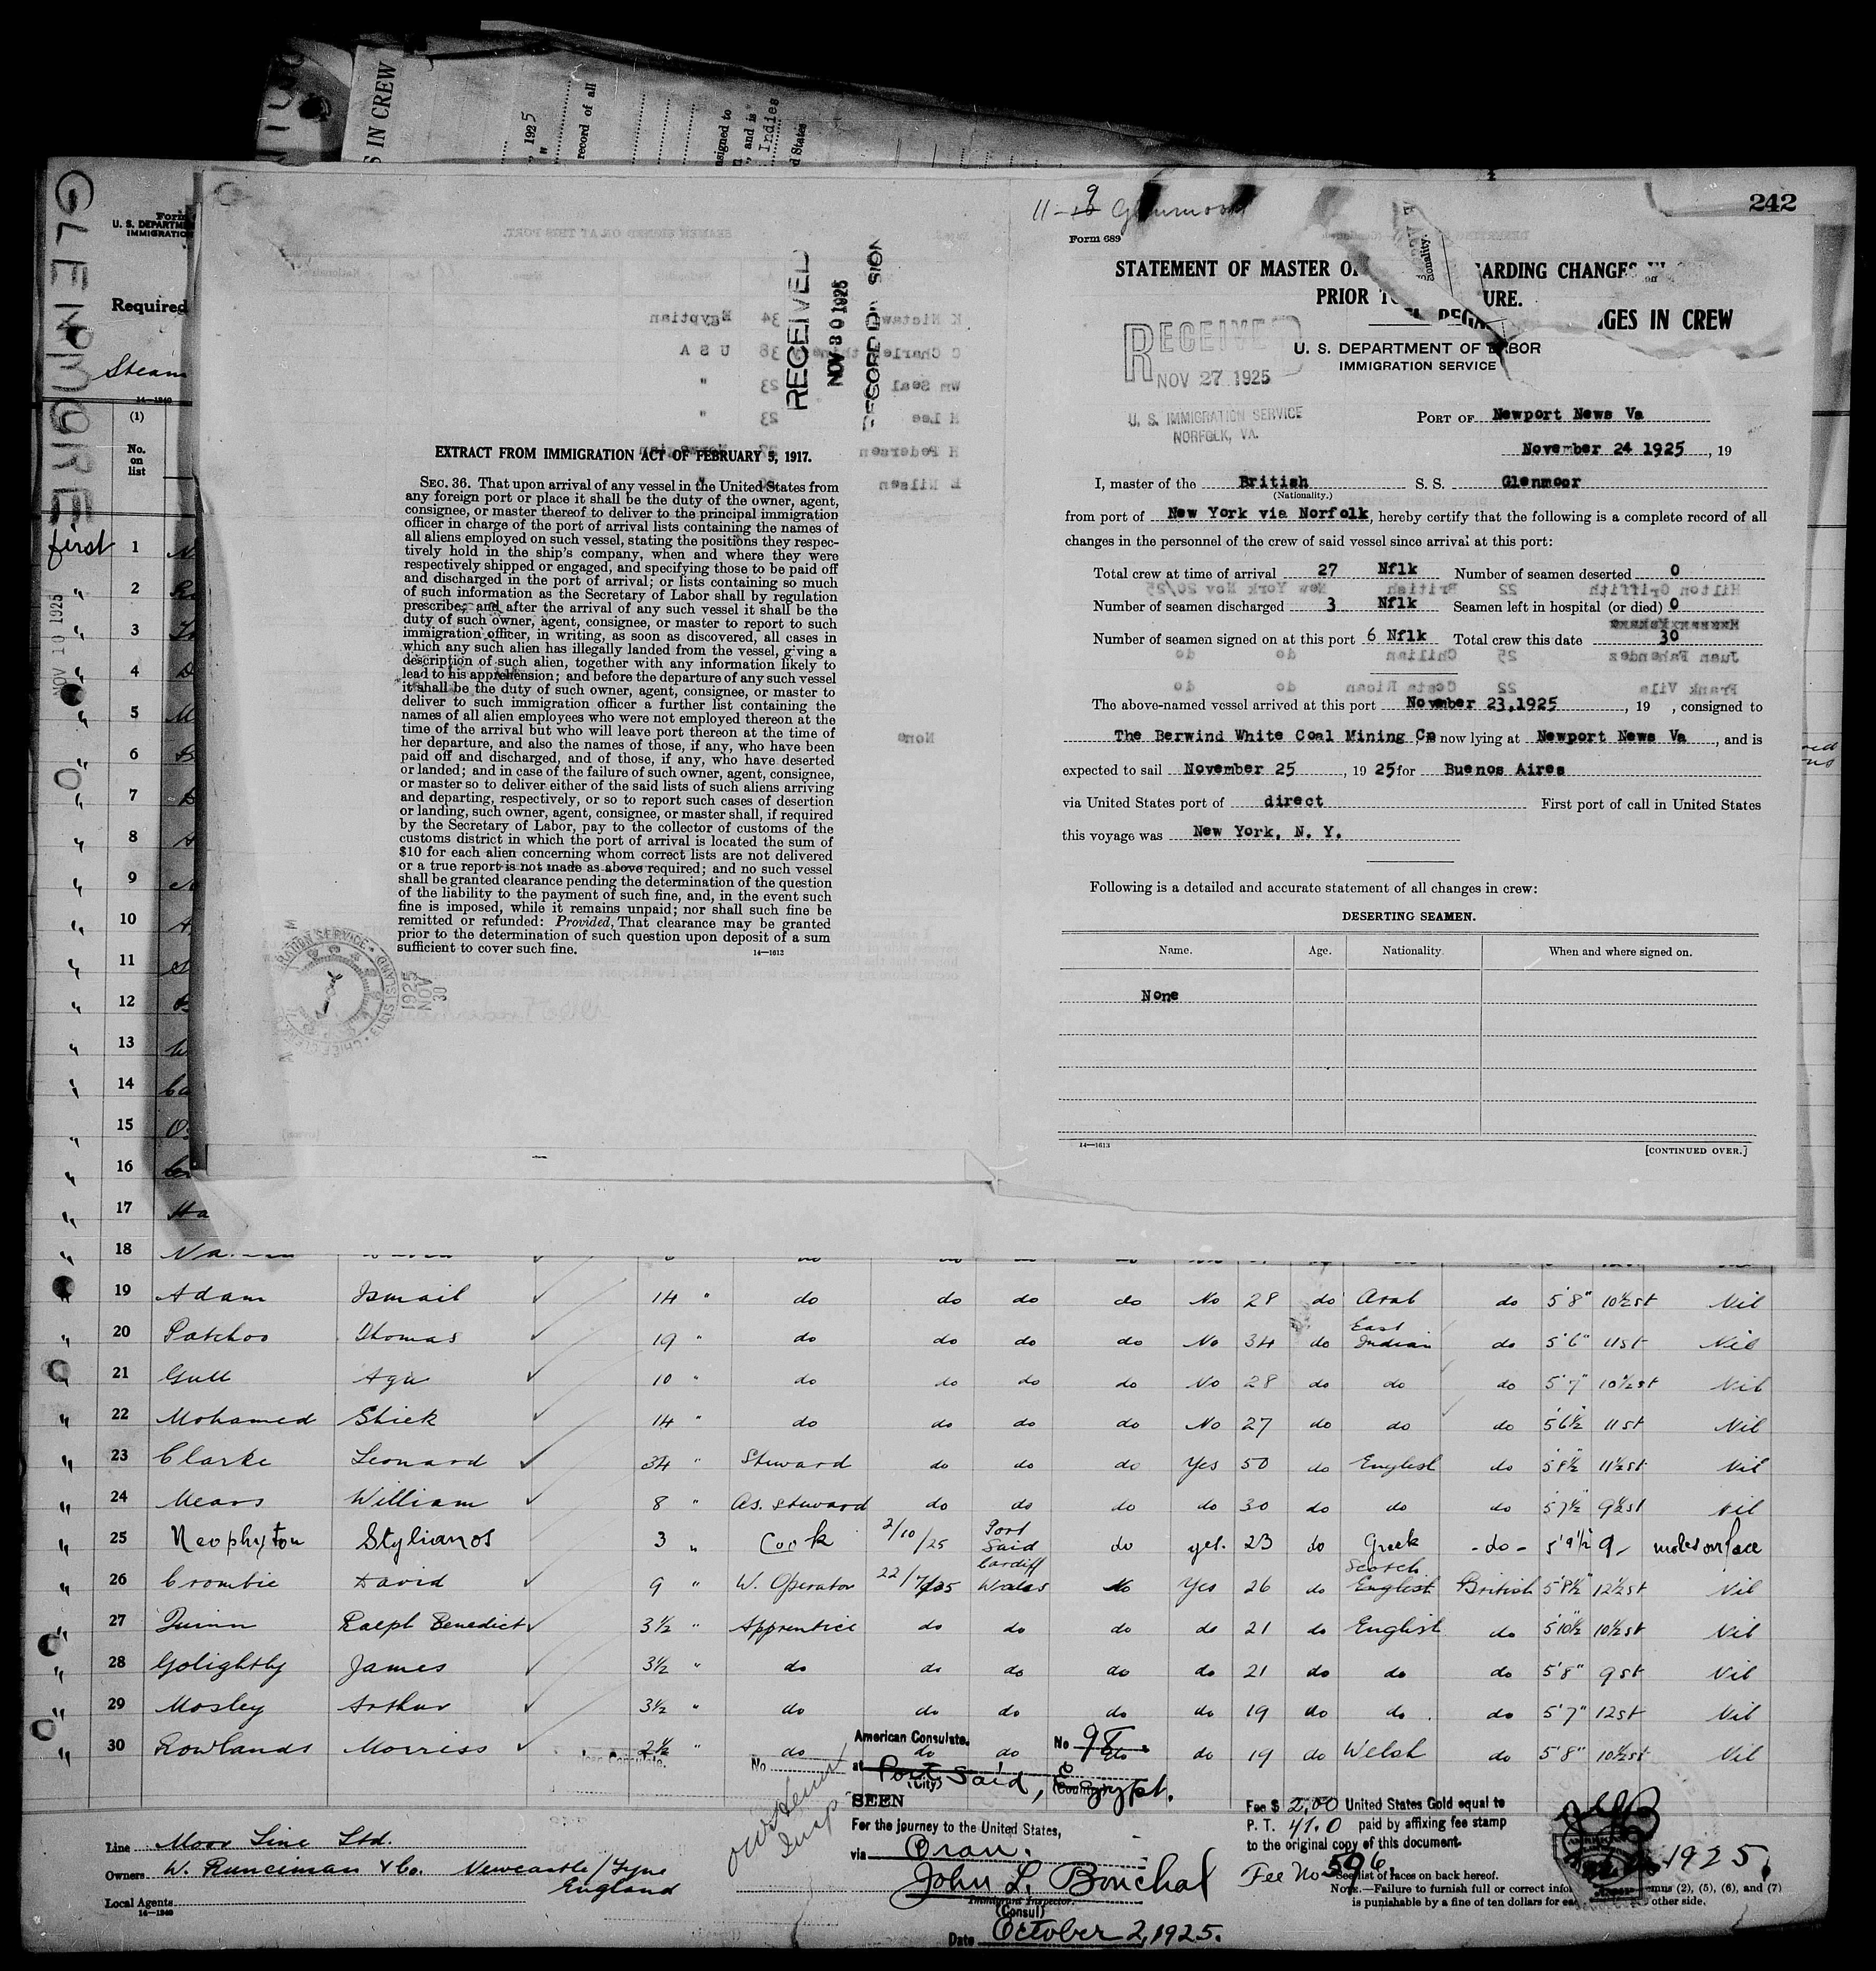 S IN CREW
, 1925
record of all
nsigned to
, and is
Indies
d States
GLENMORE
U. S. DEPARTME
IMMIGRATION
Required
Steam
14—1240
(1)
No.
on
list
NOV 10 1925
RECEIVED
NOV 30 1925
RECORD DIVISION
EXTRACT FROM IMMIGRATION ACT OF FEBRUARY 5, 1917.
SEC. 36. That upon arrival of any vessel in the United States from
any foreign port or place it shall be the duty of the owner, agent,
consignee, or master thereof to deliver to the principal immigration
officer in charge of the port of arrival lists containing the names of
all aliens employed on such vessel, stating the positions they respec-
tively hold in the ship's company, when and where they were
respectively shipped or engaged, and specifying those to be paid off
and discharged in the port of arrival; or lists containing so much
of such information as the Secretary of Labor shall by regulation
prescribe; and after the arrival of any such vessel it shall be the
duty of such owner, agent, consignee, or master to report to such
immigration officer, in writing, as soon as discovered, all cases in
which any such alien has illegally landed from the vessel, giving a
description of such alien, together with any information likely to
lead to his apprehension; and before the departure of any such vessel
it shall be the duty of such owner, agent, consignee, or master to
deliver to such immigration officer a further list containing the
names of all alien employees who were not employed thereon at the
time of the arrival but who will leave port thereon at the time of
her departure, and also the names of those, if any, who have been
paid off and discharged, and of those, if any, who have deserted
or landed; and in case of the failure of such owner, agent, consignee,
or master so to deliver either of the said lists of such aliens arriving
and departing, respectively, or so to report such cases of desertion
or landing, such owner, agent, consignee, or master shall, if required
by the Secretary of Labor, pay to the collector of customs of the
customs district in which the port of arrival is located the sum of
$10 for each alien concerning whom correct lists are not delivered
or a true report is not made as above required; and no such vessel
shall be granted clearance pending the determination of the question
of the liability to the payment of such fine, and, in the event such
fine is imposed, while it remains unpaid; nor shall such fine be
remitted or refunded: Provided, That clearance may be granted
prior to the determination of such question upon deposit of a sum
sufficient to cover such fine.
14—1613
1925 NOV 30
242
11-9 Glenmoor
Form 689
STATEMENT OF MASTER O ARDING CHANGES
PRIOR T URE.
NGES IN CREW
U. S. DEPARTMENT OF LABOR
IMMIGRATION SERVICE
RECEIVED
NOV 27 1925
U. S. IMMIGRATION SERVICE
NORFOLK, VA.
PORT OF Newport News Va
November 24 1925, 19
I, master of the British S. S. Glenmoor
(Nationality.)
from port of New York via Norfolk, hereby certify that the following is a complete record of all
changes in the personnel of the crew of said vessel since arrival at this port:
Total crew at time of arrival 27 Nflk Number of seamen deserted 0
Number of seamen discharged 3 Nflk Seamen left in hospital (or died) 0
Number of seamen signed on at this port 6 Nflk Total crew this date 30
The above-named vessel arrived at this port November 23,1925, 19 , consigned to
The Berwind White Coal Mining Co now lying at Newport News Va, and is
expected to sail November 25, 19 25 for Buenos Aires
via United States port of direct First port of call in United States
this voyage was New York, N. Y.
Following is a detailed and accurate statement of all changes in crew:
DESERTING SEAMEN.
Name. Age. Nationality When and where signed on.
None
14—1613
[CONTINUED OVER.]
first 1
" 2
" 3
" 4
" 5
" 6
" 7
" 8
" 9
" 10
" 11
" 12
" 13
" 14
" 15
" 16
" 17 Ha
" 18
" 19 Adam Ismail 14 " do do do do No 28 do Arab do 5'8" 10½st Nil
" 20 Patchoo Thomas 19 " do do do do No 34 do East Indian do 5'6" 11st Nil
" 21 Gull Aziz 10 " do do do do No 28 do do do 5'7" 10½st Nil
" 22 Mohamed Shiek 14 " do do do do No 27 do do do 5'6½ 11st Nil
" 23 Clarke Leonard 34 " Steward do do do Yes 50 do English do 5'8½ 11½st Nil
" 24 Mears William 8 " As. Steward do do do do 30 do do do 5'7½ 9½st Nil
" 25 Neophyton Stylianos 3 " Cook 2/10/25 Port Said do yes. 23 do Greek - do - 5'9½ 9 moles on face
" 26 Crombie David 9 " W. Operator 22/7/25 Cardiff Wales No Yes 26 do Scotch English British 5'8½ 12½st Nil
" 27 Quinn Ralph Benedict 3½ " Apprentice do do do do 21 do English do 5'10½ 10½st Nil
" 28 Golightly James 3½ " do do do do do 21 do do do 5'8" 9st Nil
" 29 Mosley Arthur 3½ " do do do do do 19 do do do 5'7" 12st Nil
" 30 Rowlands Morriss 2½ " do do do do do 19 do Welsh do 5'8" 10½st Nil
American Consulate.
No 98
at Port Said, Egypt.
(City) (Country)
SEEN
For the journey to the United States,
via Oran.
John L. Bouchal
Immigrant Inspector.
(Consul)
Date October 2, 1925.
Line Moor Line Ltd.
Owners W. Runciman & Co. Newcastle/Tyne
England
Local Agents
14—1240
Fee $ 2.00 United States Gold equal to
P. T. 41.0 paid by affixing fee stamp
to the original copy of this document.
Fee No 596.
See list of races on back hereof.
NOTE.—Failure to furnish full or correct info mns (2), (5), (6), and (7)
is punishable by a fine of ten dollars for ea other side.
1925.